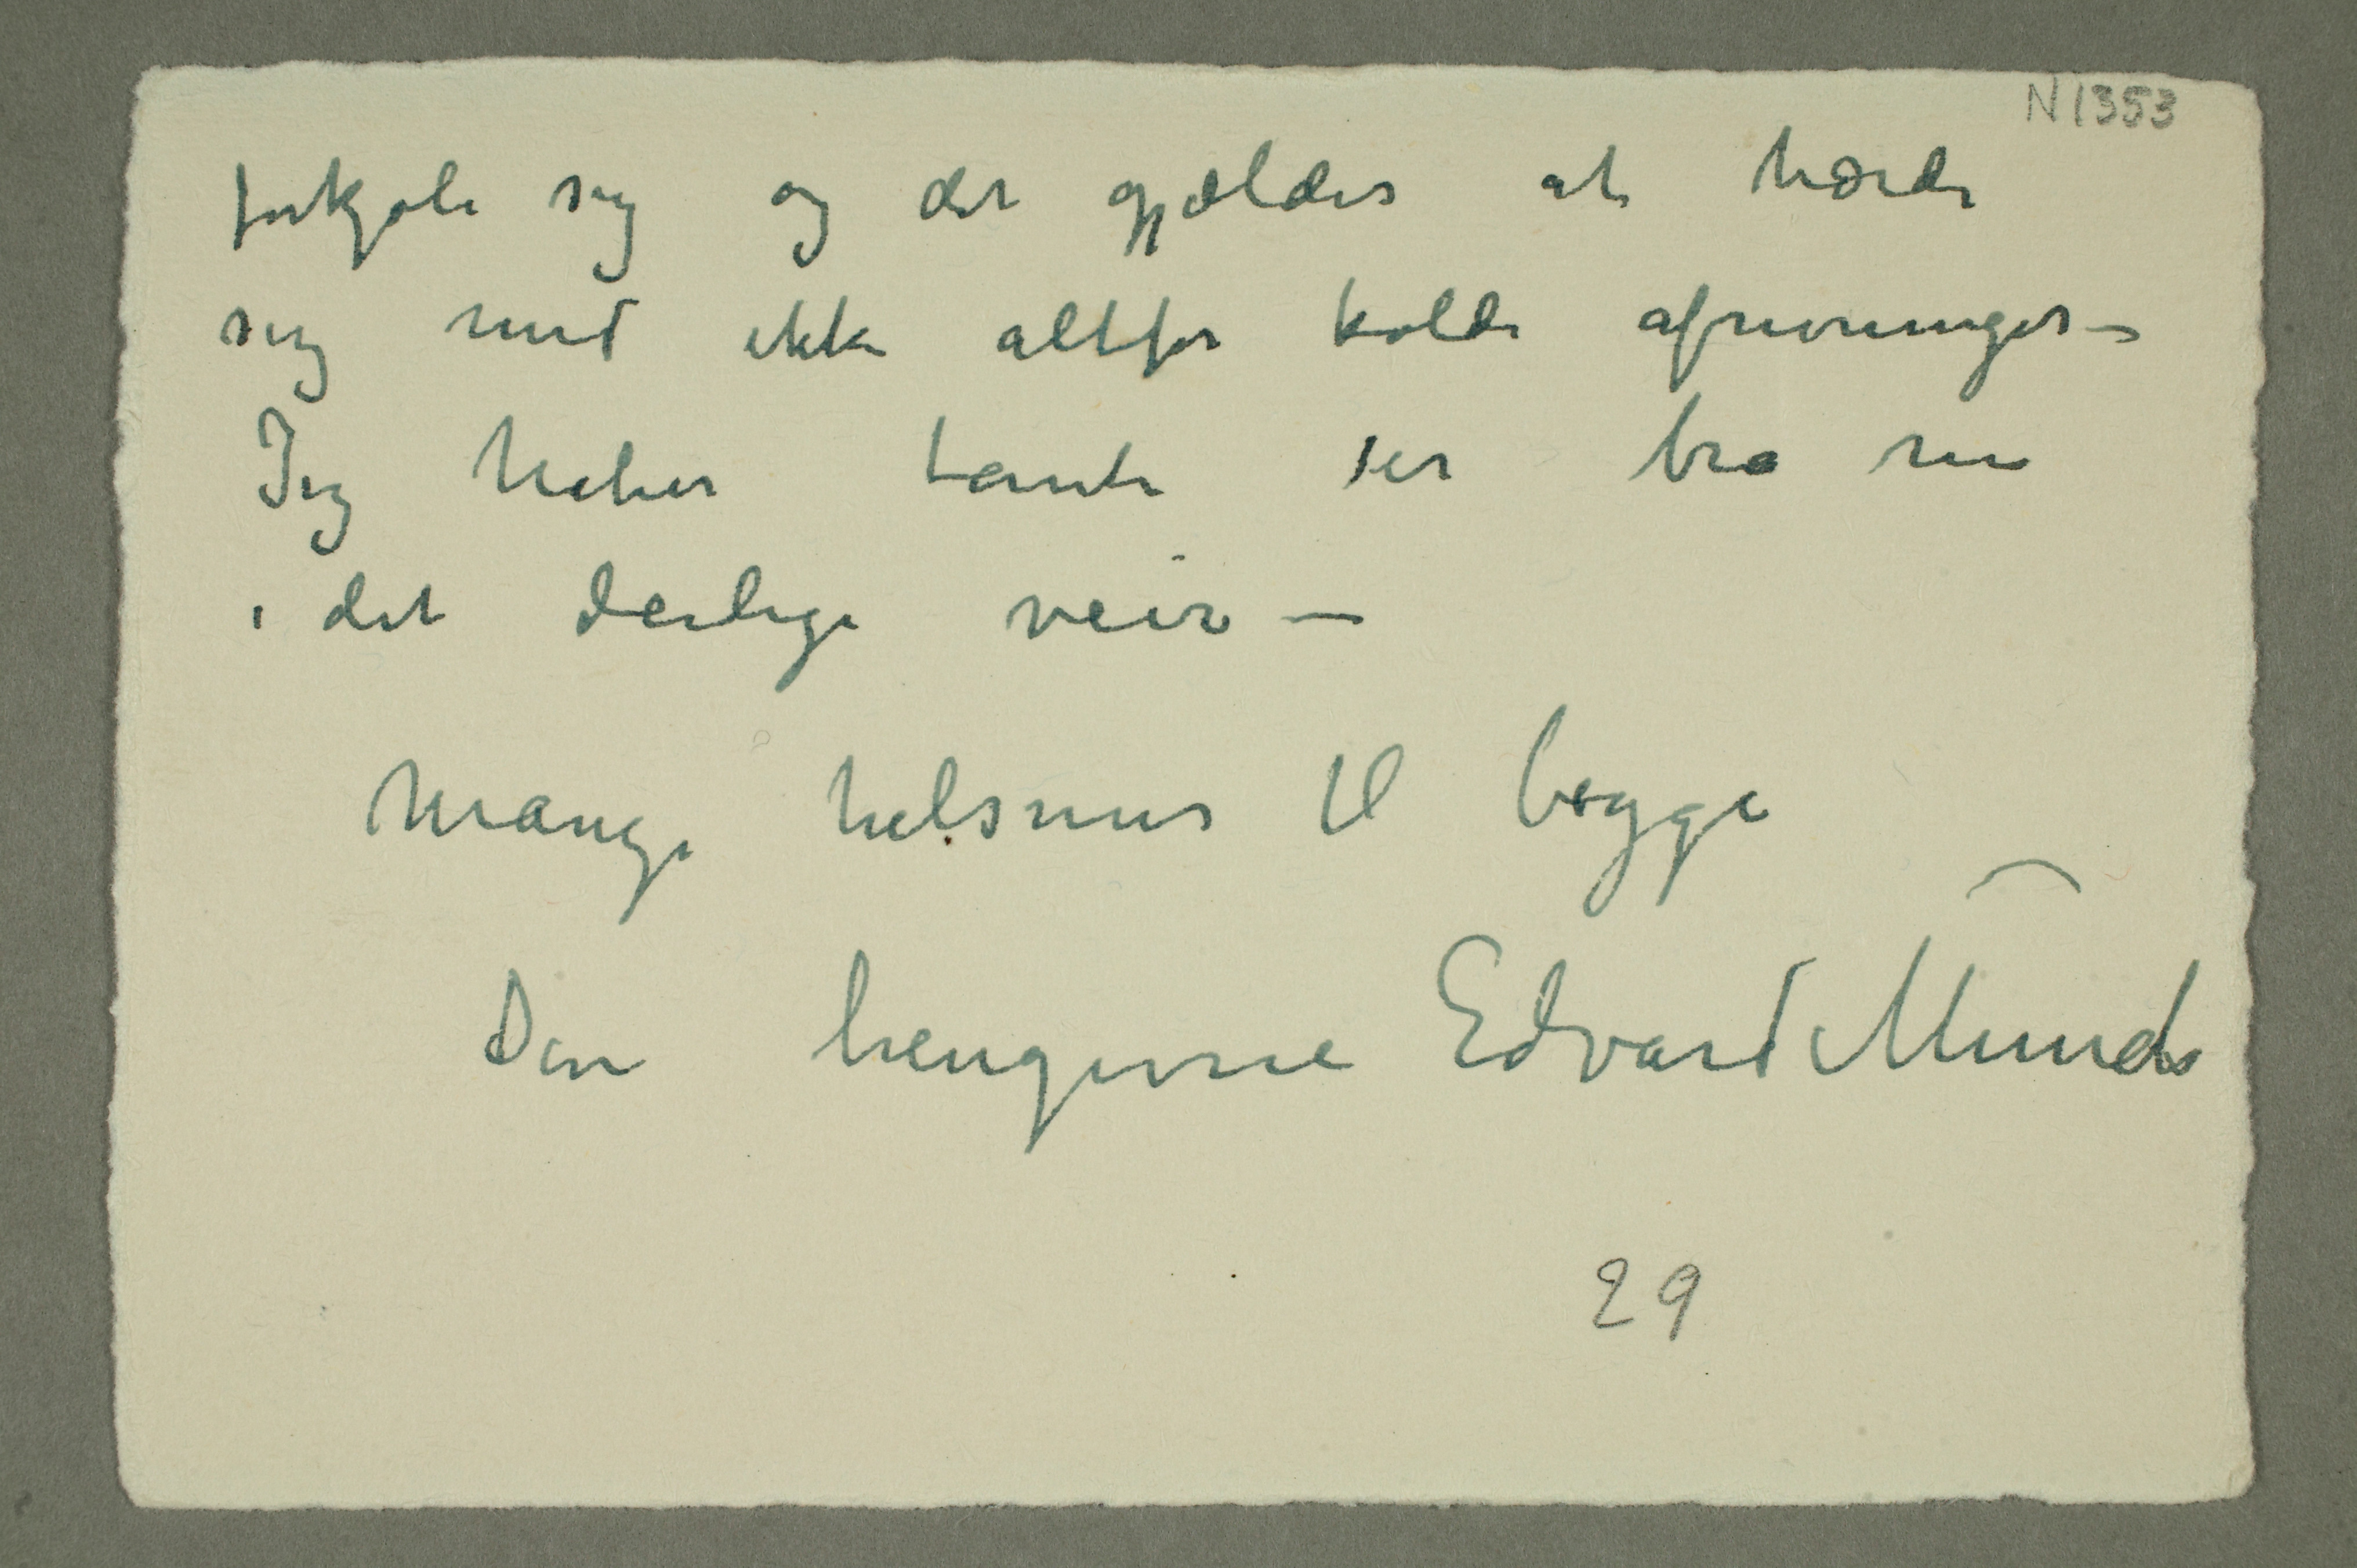 N 1353
forkjøle sig og det gjælder at hærde
sig med ikke altfor kolde afrivninger –
Jeg haber tante er bra nu
i det deilige veir –
Mange helsener til begge
Din hengivne Edvard Munch
29